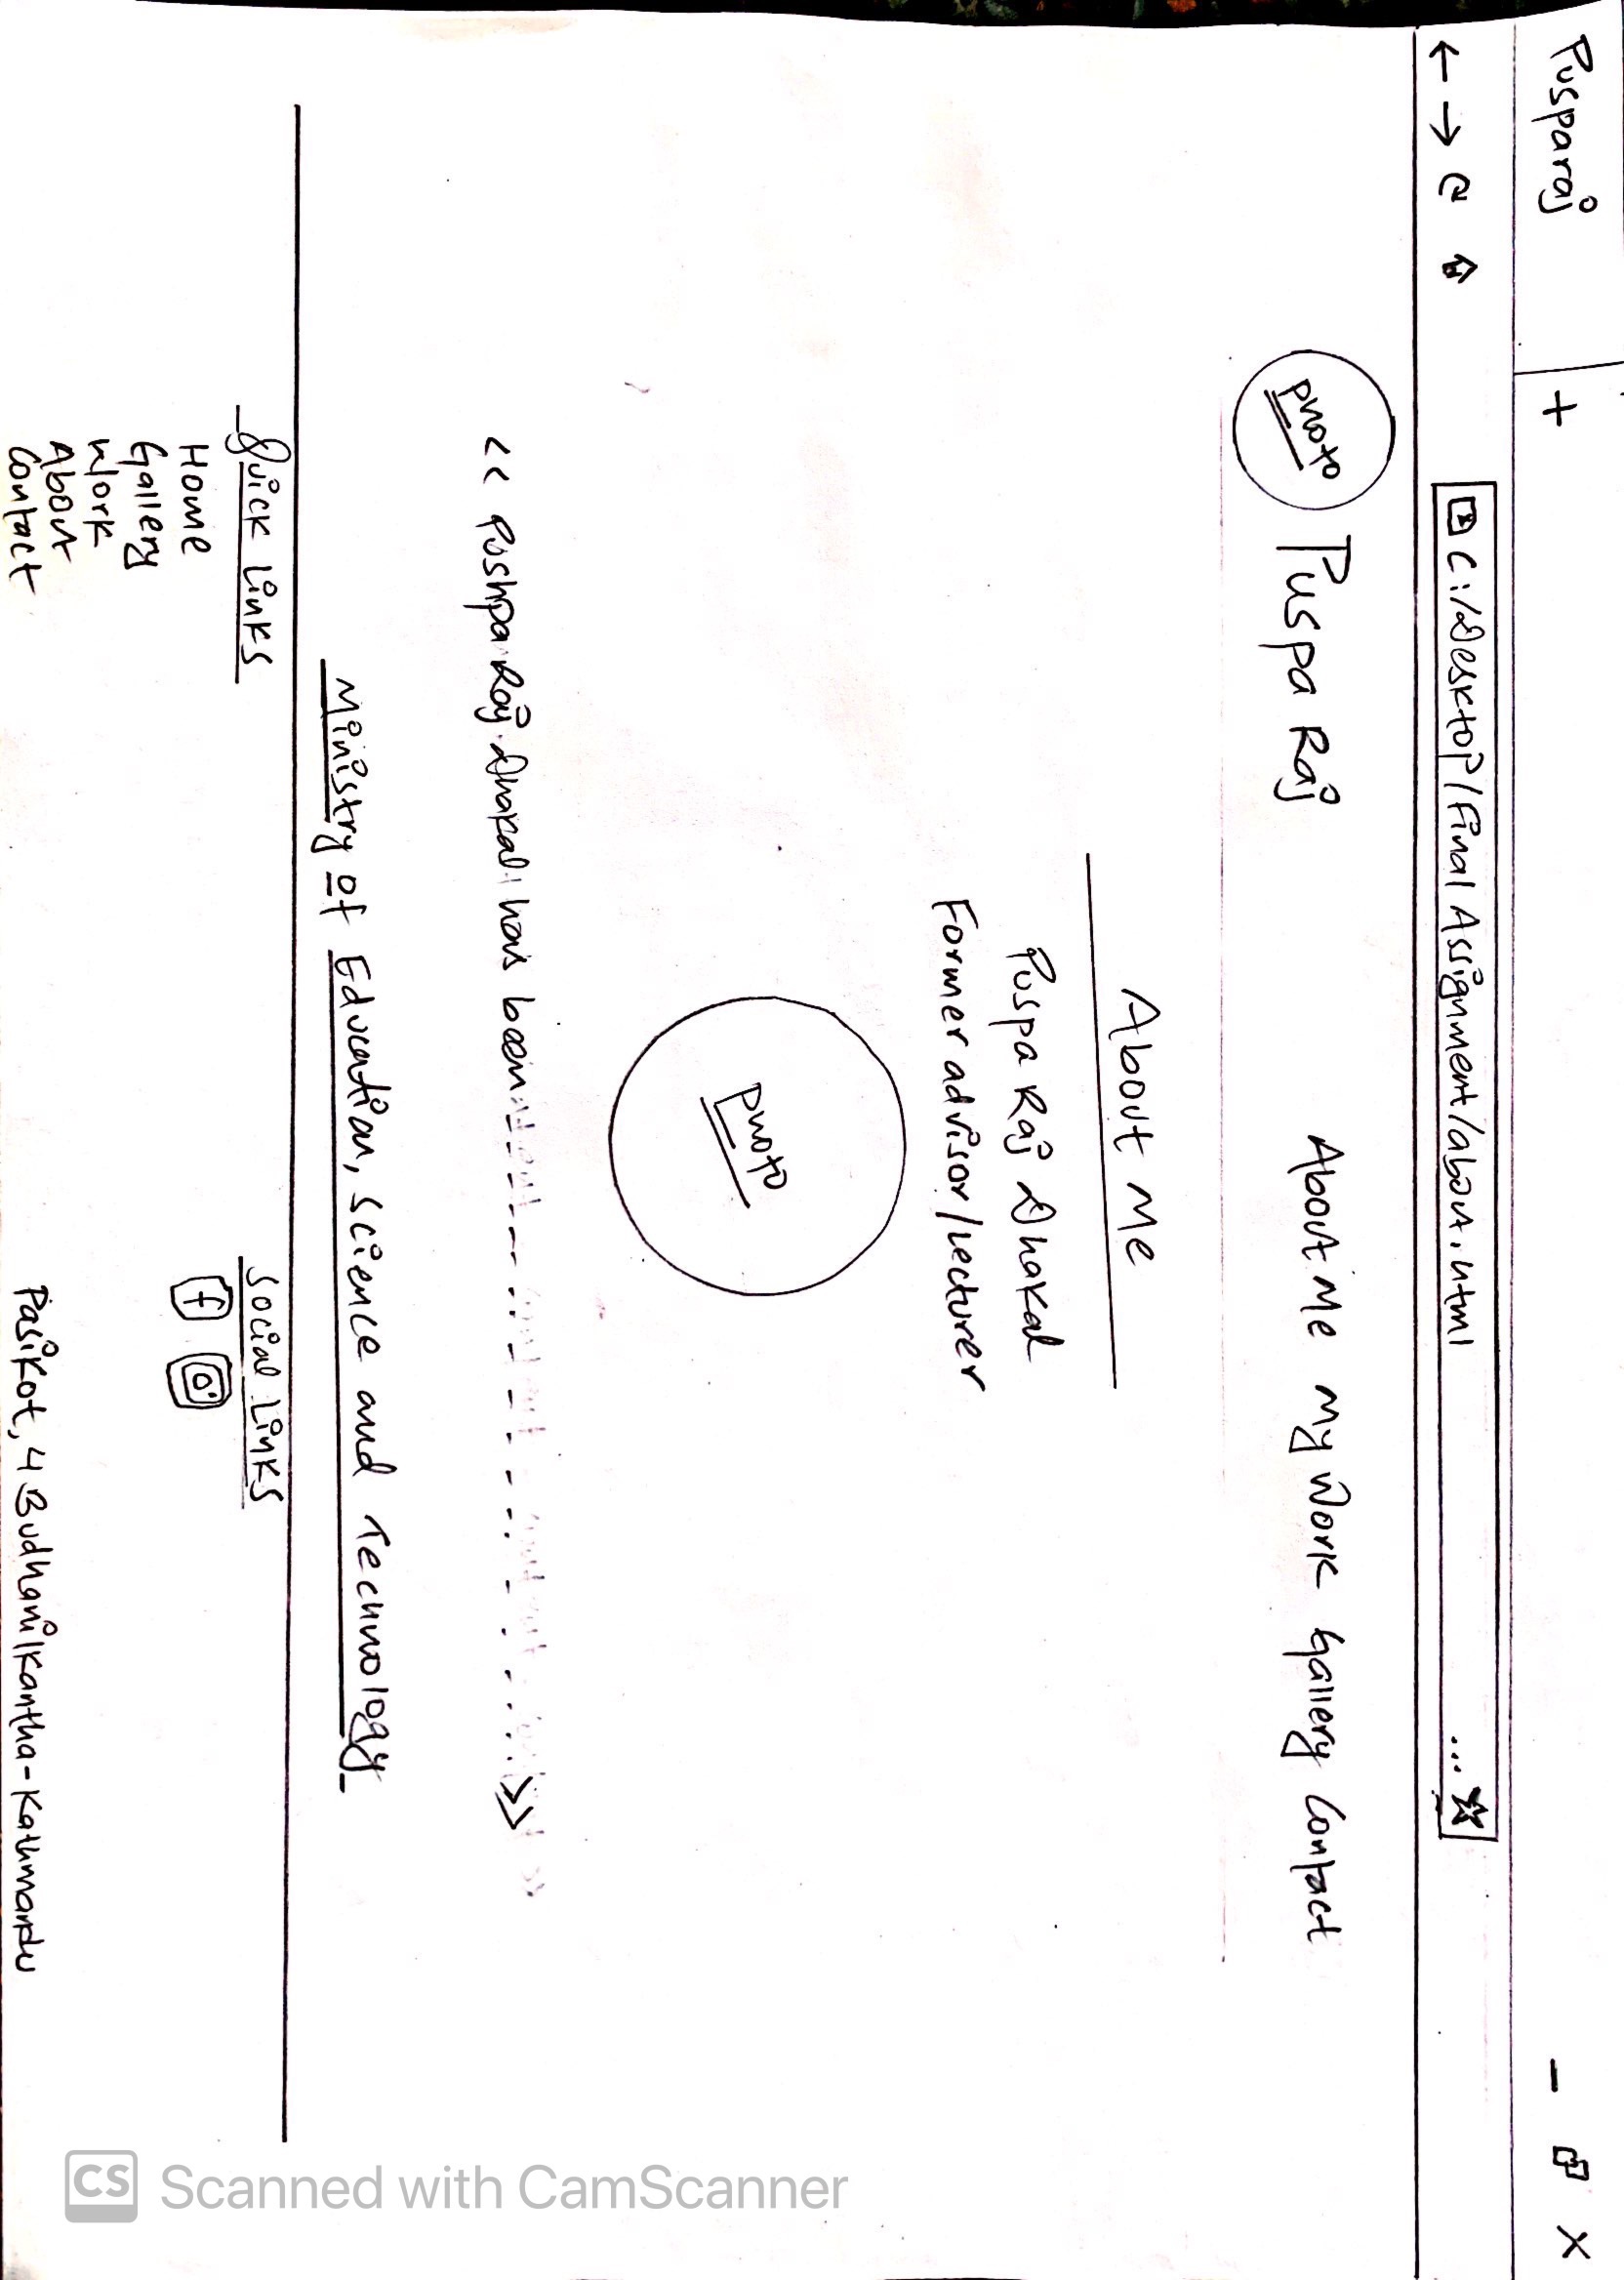 Pusparaj +
C:/Desktop/Final Assignment/about.html ...
photo Puspa Raj About Me My Work Gallery Contact
About Me
Puspa Raj Dhakal
Former advisor/Lecturer
photo
<< Pushpa Raj Dhakal has been >>
Ministry of Education, Science and Technology
Quick Links Social Links
Home f
Gallery
Work
About
Contact Pasikot, 4 Budhanilkantha-Kathmandu
CS Scanned with CamScanner